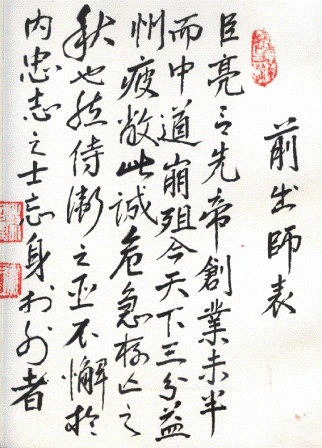 前出師表
臣亮言先帝創業未半
而中道崩殂今天下三分益
州疲敝此誠危急存亡之
秋也然侍衛之臣不懈於
内忠志之士忘身於外者